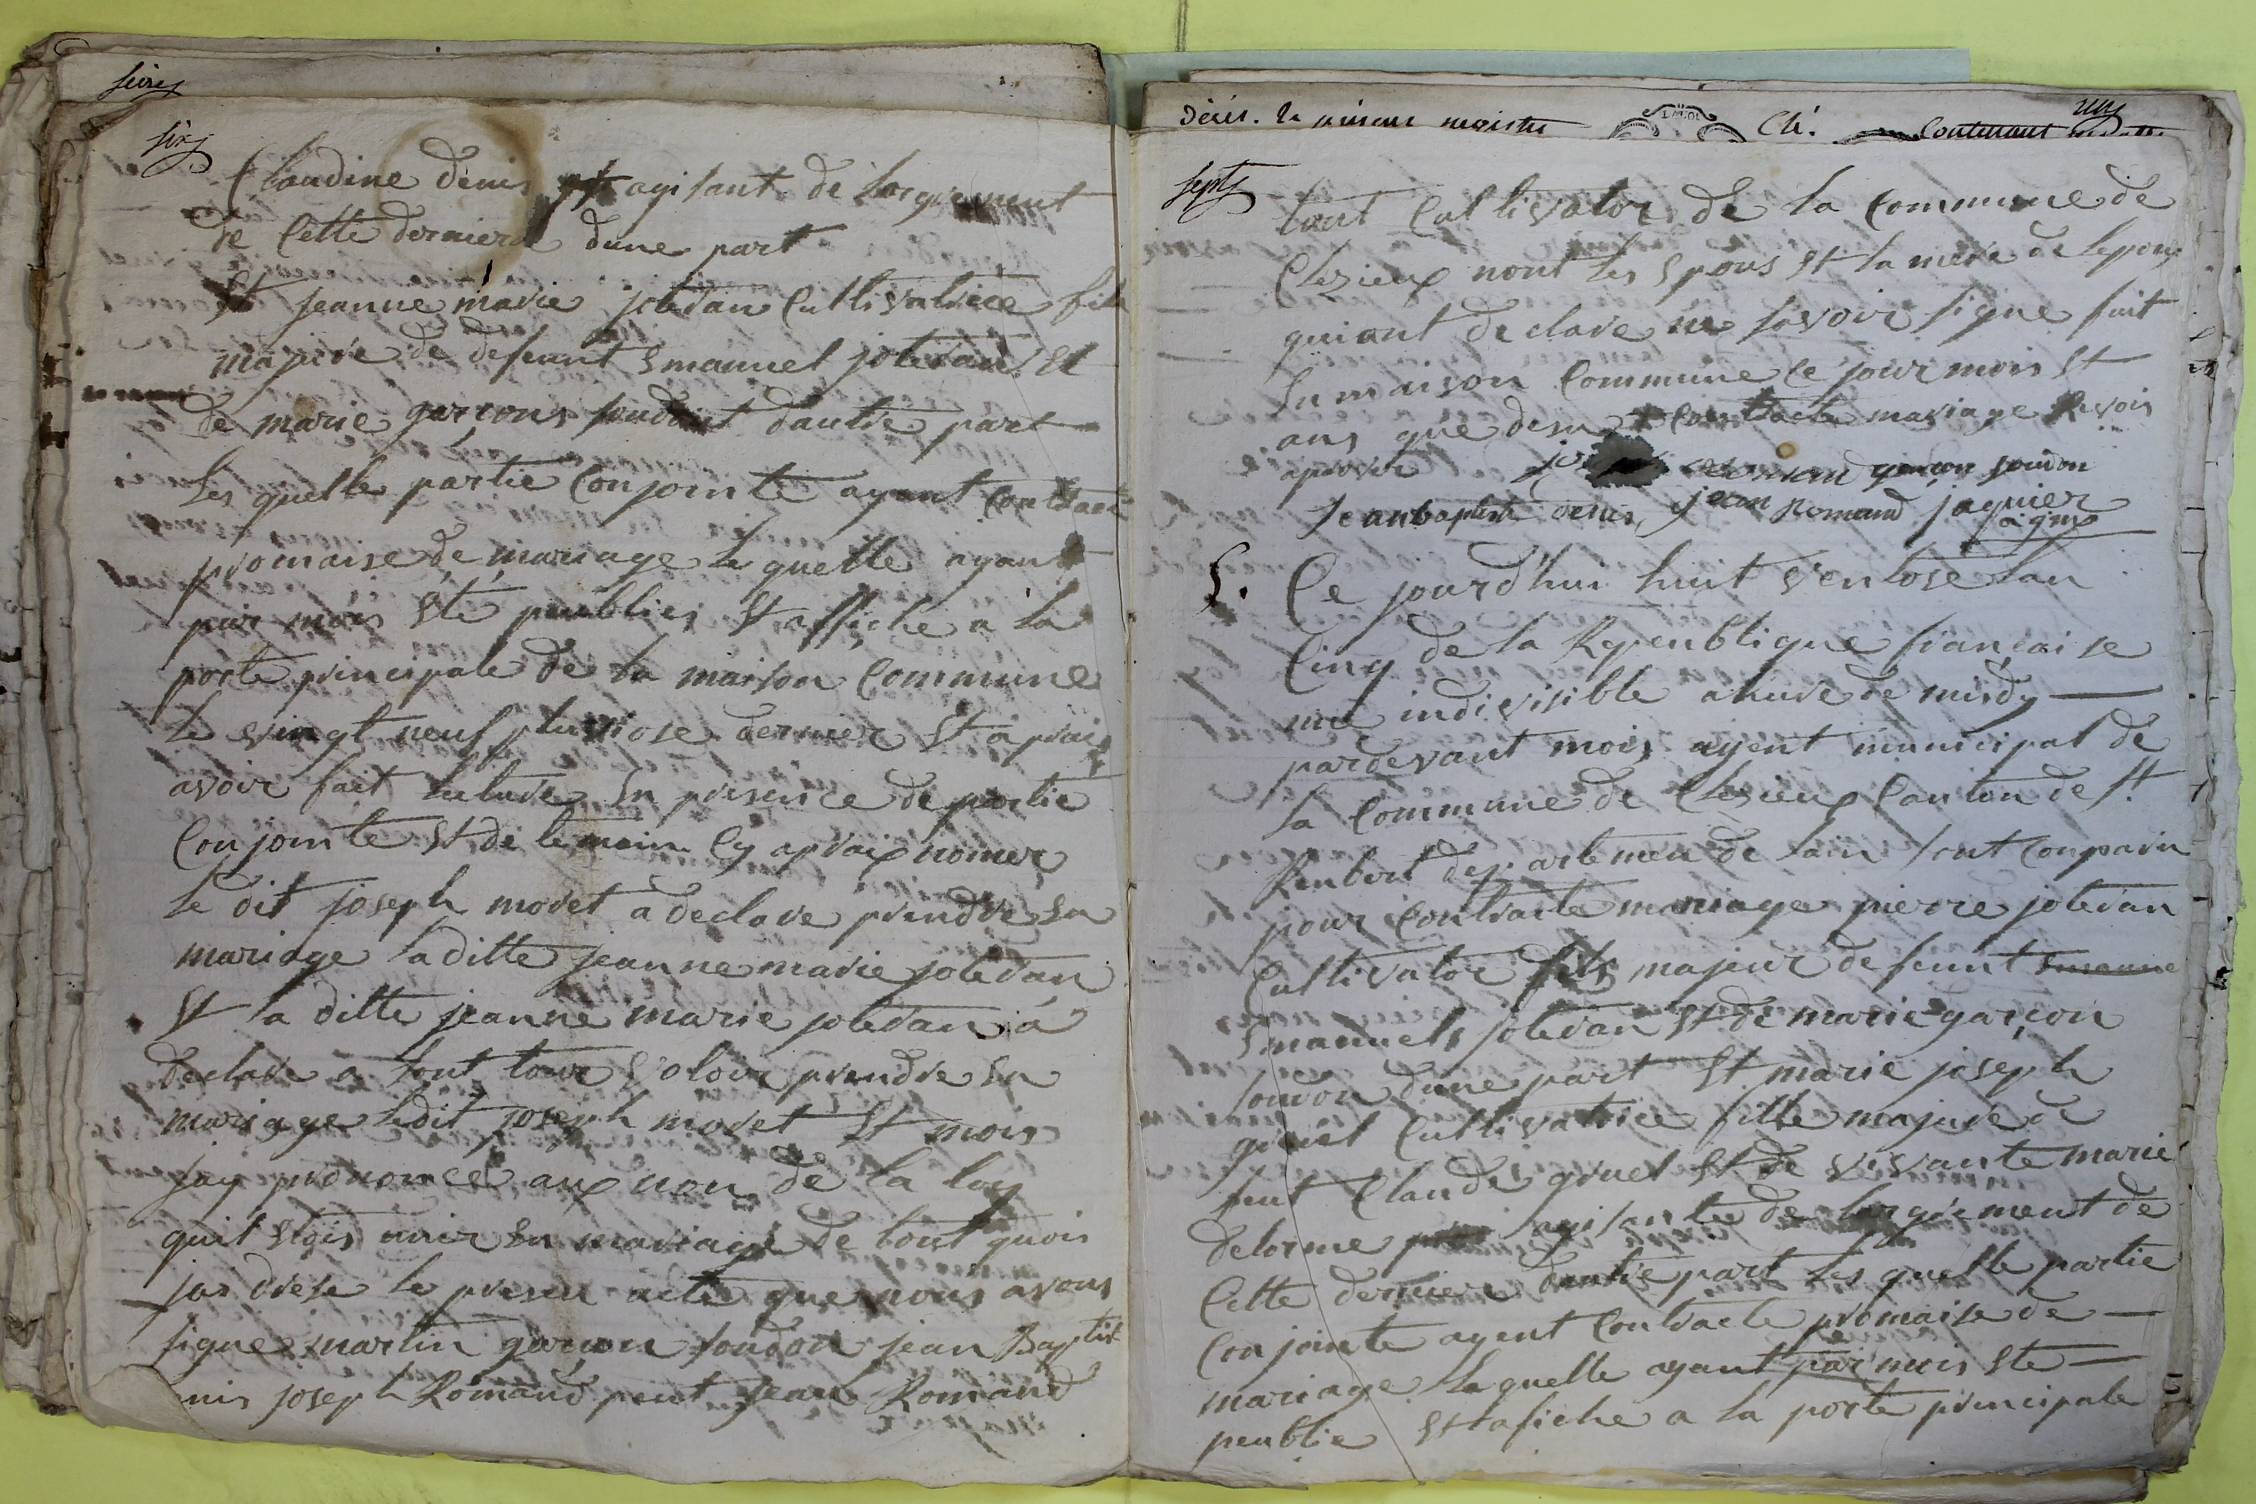 sixs
Claudine denis agisant de lorgiement
de Cette derniere dune part
Et jeanne marie joletdan Cultivatrice file
majeure de defeunt Emanuel joletdan Et
de marie garcons soudont dautre part
Les quelle partie Conjointe ayant Contracté
promaise de mariage le quelle ayant
par mois Eté peublies Et affiche a la
porte principale de la maison Commune
le vingt neuf pluviose dernier Et aprais
avoir fait lecture En presence de partie
Conjointe Et de temoin Cy apraix nomer
le dit joseph moret a declare prendre En
mariage laditte jeanne marie joletdan
Et la ditte jeanne marie joletdan a
declare a sont tour voloir prendre En
mariage ledit joseph moret Et mois
jay prononcé aux non de la loy
quil Etois unir En mariage de tout quois
jas drese le presen acte que nous avons
signe martin garcon soudon jean Baptist
nis joseph Romand peut jean Romand
Décés. le présent registre Clé. Contenant
septs
tout Cultivator de la Commune de
Clezieux nont les Epous Et la mere de lepous
qui ont declare ne savoir signe fait
En maison Commune ce jour mois Et
ans que desu Contracte mariage Revois
aprover
garcon soudon
jeanbaptiste denis, jean Romand jaquier
agmp
5. Ce jourd'hui huit ventose lan
Cinq de la Repeublique francaise
une indivisible a heure de midy
pardevant mois agent municipal de
la Commune de Clezieux Canton de St
Renbert departemen de lain sont Conparu
pour Contracte mariage pierre joletdan
Cultivator fils majeur de feunt
Emanuels joletdan Et de marie garcon
soudon dune part Et marie joseph
gruel Cultivatrice fille majeure de
feut Claude gruel Et de vivante marie
delorme agisante de lorgiement de
Cette derniere dautre part les quelle partie
Conjointe ayent Contracte promaise de
mariage la quelle ayant par mois Ete
peublie Et afiche a la porte principale